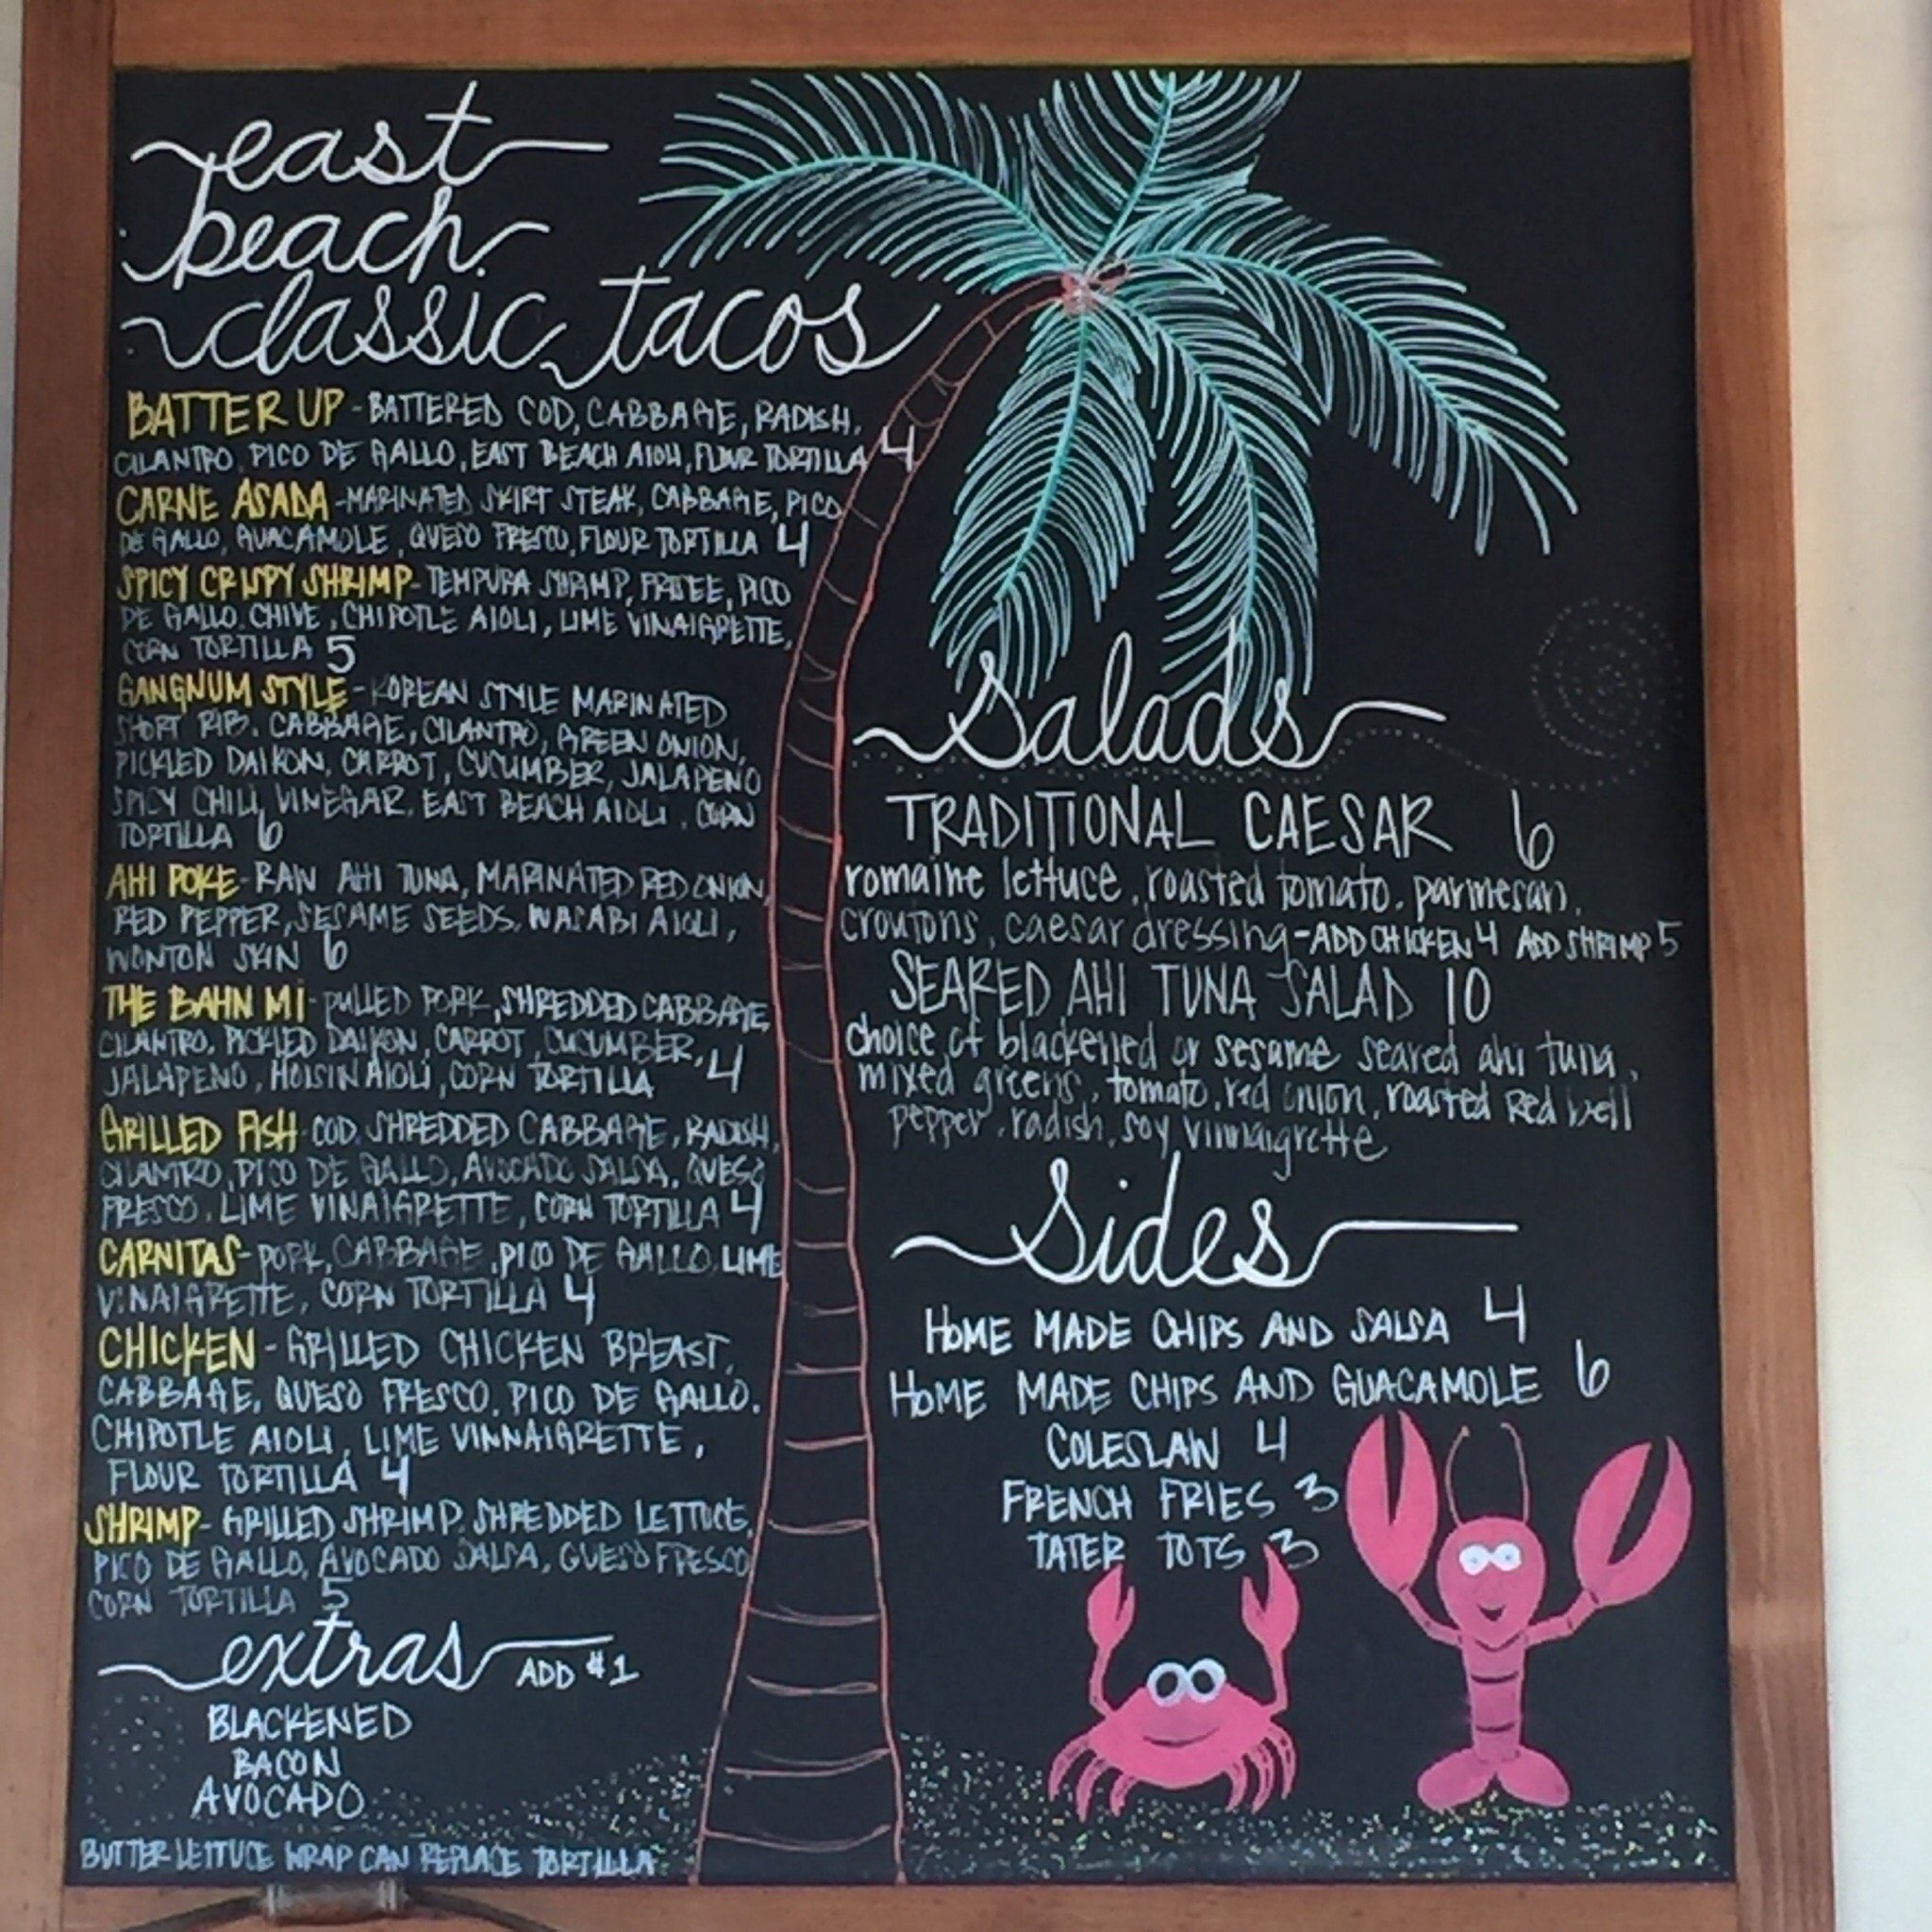 east
beach
classic tacos
BATTER UP - BATTERED COD, CABBAGE, RADISH,
CILANTRO, PICO DE GALLO, EAST BEACH AIOLI, FLOUR TORTILLA 4
CARNE ASADA - MARINATED SKIRT STEAK, CABBAGE, PICO
DE GALLO, GUACAMOLE, QUESO FRESCO, FLOUR TORTILLA 4
SPICY CRISPY SHRIMP - TEMPURA SHRIMP, FRISEE, PICO
DE GALLO, CHIVE, CHIPOTLE AIOLI, LIME VINAIGRETTE,
CORN TORTILLA 5
GANGNUM STYLE - KOREAN STYLE MARINATED
SHORT RIB, CABBAGE, CILANTRO, GREEN ONION,
PICKLED DAIKON, CARROT, CUCUMBER, JALAPENO
SPICY CHILI VINEGAR, EAST BEACH AIOLI, CORN
TORTILLA 6
AHI POKE - RAW AHI TUNA, MARINATED RED ONION,
RED PEPPER, SESAME SEEDS, WASABI AIOLI,
WONTON SKIN 6
THE BAHN MI - PULLED PORK, SHREDDED CABBAGE,
CILANTRO, PICKLED DAIKON, CARROT, CUCUMBER,
JALAPENO, HOISIN AIOLI, CORN TORTILLA 4
GRILLED FISH - COD, SHREDDED CABBAGE, RADISH,
CILANTRO, PICO DE GALLO, AVOCADO SALSA, QUESO
FRESCO, LIME VINAIGRETTE, CORN TORTILLA 4
CARNITAS - PORK, CABBAGE, PICO DE GALLO, LIME
VINAIGRETTE, CORN TORTILLA 4
CHICKEN - GRILLED CHICKEN BREAST,
CABBAGE, QUESO FRESCO, PICO DE GALLO,
CHIPOTLE AIOLI, LIME VINNAIGRETTE,
FLOUR TORTILLA 4
SHRIMP - GRILLED SHRIMP, SHREDDED LETTUCE,
PICO DE GALLO, AVOCADO SALSA, QUESO FRESCO
CORN TORTILLA 5
extras ADD $1
BLACKENED
BACON
AVOCADO
BUTTER LETTUCE WRAP CAN REPLACE TORTILLA
Salads
TRADITIONAL CAESAR 6
romaine lettuce, roasted tomato, parmesan,
croutons, caesar dressing - ADD CHICKEN 4 ADD SHRIMP 5
SEARED AHI TUNA SALAD 10
choice of blackened or sesame seared ahi tuna,
mixed greens, tomato, red onion, roasted Red bell
pepper, radish, soy vinnaigrette
Sides
HOME MADE CHIPS AND SALSA 4
HOME MADE CHIPS AND GUACAMOLE 6
COLESLAW 4
FRENCH FRIES 3
TATER TOTS 3